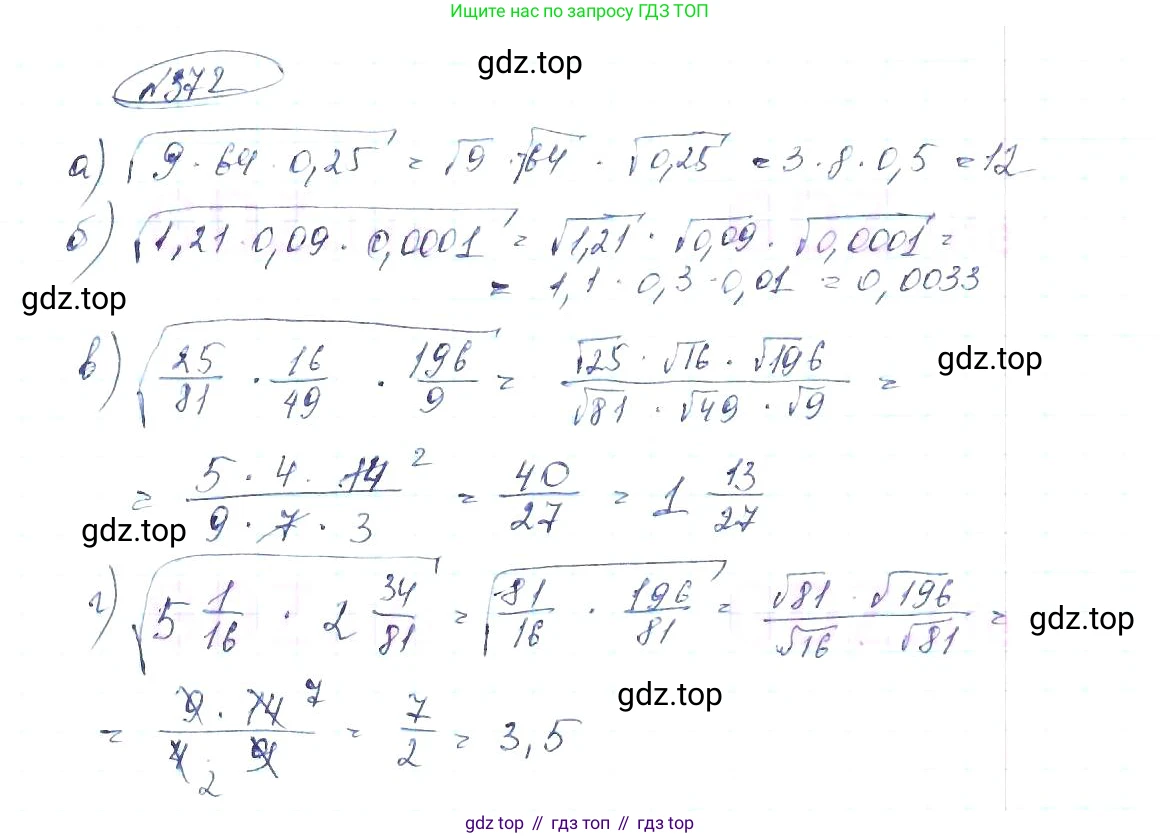 Ищите нас по запросу ГДЗ ТОП
gdz.top
№372
а) √(9 · 64 · 0,25) = √9 · √64 · √0,25 = 3 · 8 · 0,5 = 12
б) √(1,21 · 0,09 · 0,0001) = √1,21 · √0,09 · √0,0001 =
= 1,1 · 0,3 · 0,01 = 0,0033
gdz.top
в) √(25/81 · 16/49 · 196/9) = (√25 · √16 · √196)/(√81 · √49 · √9) =
gdz.top
= (5 · 4 · 14 2)/(9 · 7 · 3) = 40/27 = 1 13/27
gdz.top
г) √(5 1/16 · 2 34/81) = √(81/16 · 196/81) = (√81 · √196)/(√16 · √81) =
gdz.top
gdz.top
= (9 · 14 7)/(4 2 9) = 7/2 = 3,5
gdz top // гдз топ // gdz top